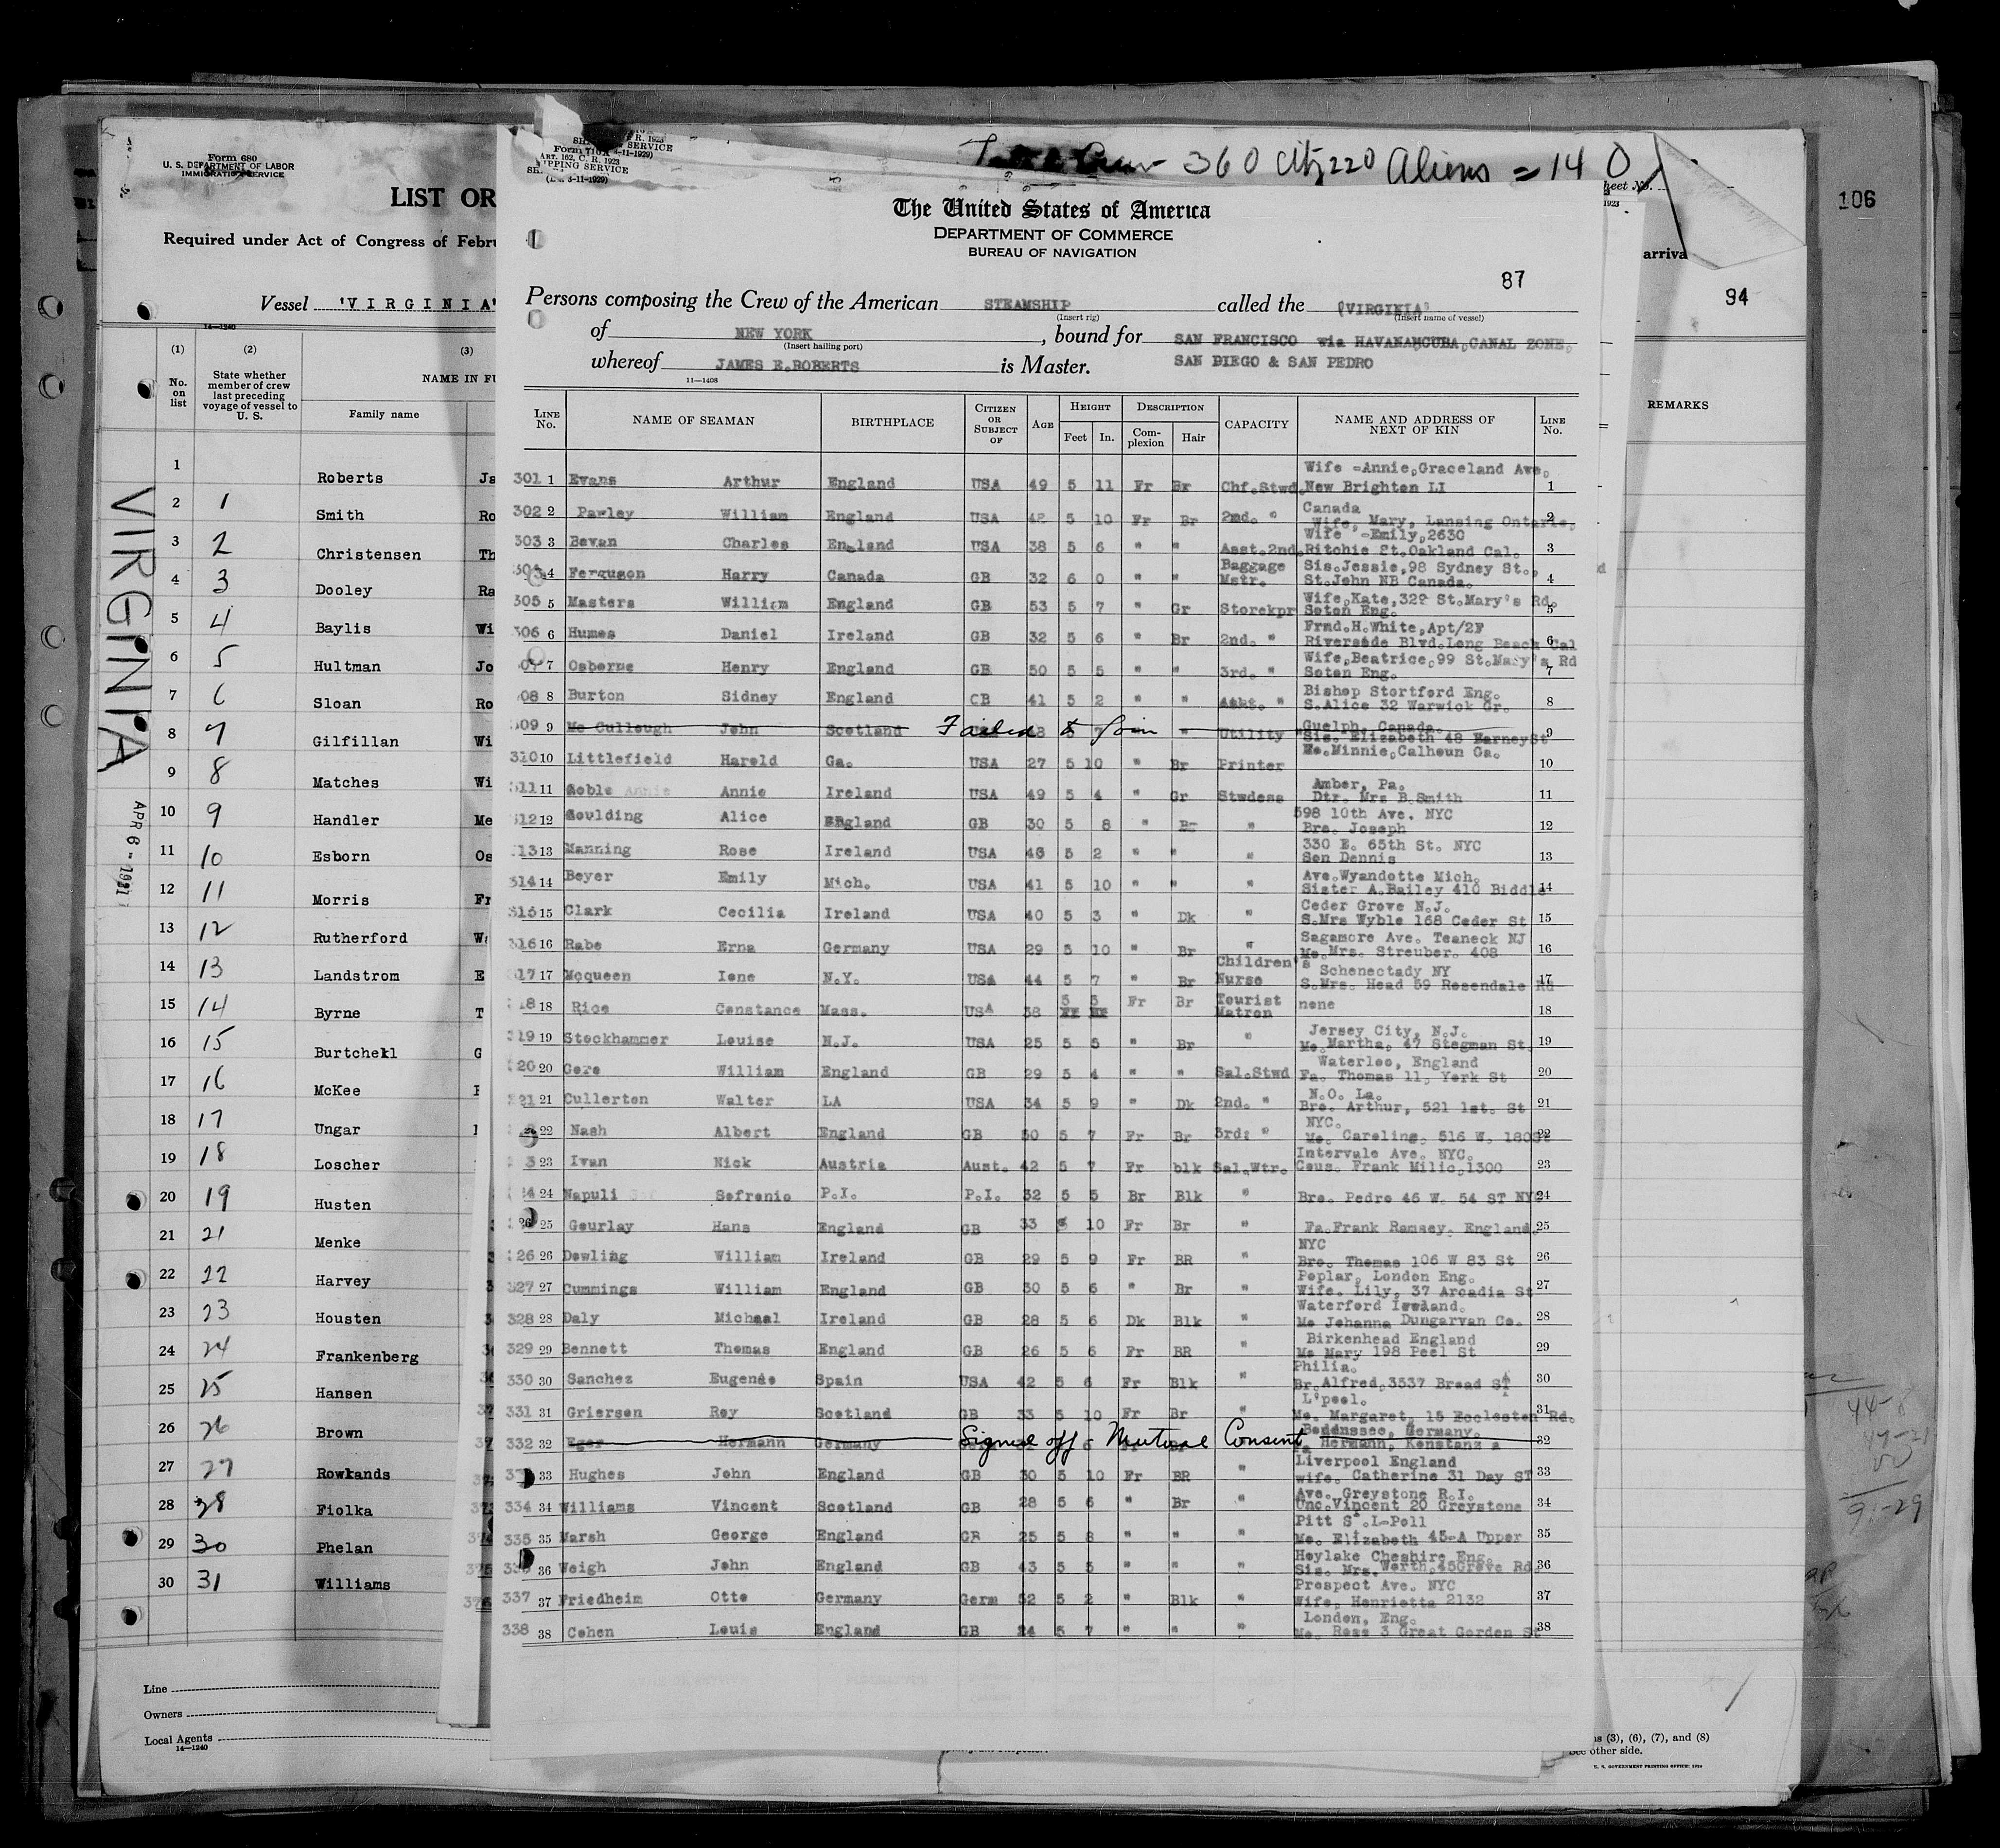 Form 680
U. S. DEPARTMENT OF LABOR
IMMIGRATION SERVICE
LIST OR
Required under Act of Congress of Febru
Vessel 'VIRGINIA'
14—1240
(1) (2) (3)
No. on list
State whether member of crew last preceding voyage of vessel to U. S.
NAME IN FU
Family name
1 Roberts Ja
2 1 Smith Ro
3 2 Christensen Th
4 3 Dooley Ra
5 4 Baylis Wi
6 5 Hultman Jo
7 6 Sloan Ro
8 7 Gilfillan Wi
9 8 Matches Wi
10 9 Handler Me
11 10 Esborn Os
12 11 Morris Fr
13 12 Rutherford Wa
14 13 Landstrom E
15 14 Byrne T
16 15 Burtchell G
17 16 McKee
18 17 Ungar
19 18 Loscher
20 19 Husten
21 21 Menke
22 22 Harvey
23 23 Housten
24 24 Frankenberg
25 25 Hansen
26 26 Brown
27 27 Rowlands
28 28 Fiolka
29 30 Phelan
30 31 Williams
VIRGINIA
APR 6 - 1931
Line
Owners
Local Agents
14—1240
Form 710
ART. 162, C. R. 1923
SHIPPING SERVICE
3-11-1929)
Crew 360 Citz 220 Aliens = 140
The United States of America
DEPARTMENT OF COMMERCE
BUREAU OF NAVIGATION
87
Persons composing the Crew of the American STEAMSHIP called the (VIRGINIA)
(Insert rig) (Insert name of vessel)
of NEW YORK, bound for SAN FRANCISCO wia HAVANAMCUBA,CANAL ZONE,
(Insert hailing port)
whereof JAMES E.ROBERTS is Master. SAN DIEGO & SAN PEDRO
11—1408
LINE No. NAME OF SEAMAN BIRTHPLACE CITIZEN OR SUBJECT OF AGE HEIGHT Feet In. DESCRIPTION Complexion Hair CAPACITY NAME AND ADDRESS OF NEXT OF KIN LINE No.
Wife -Annie,Graceland Ave,
301 1 Evans Arthur England USA 49 5 11 Fr Br Chf.Stwd. New Brighton LI 1
Canada
302 2 Pawley William England USA 42 5 10 Fr Br 2nd. " Wife, Mary, Lansing Ontario, 2
Wife -Emily,2630
303 3 Bevan Charles England USA 38 5 6 " " Asst.2nd. Ritchie St.Oakland Cal. 3
Baggage Sis.Jessie,98 Sydney St.,
4 Ferguson Harry Canada GB 32 6 0 " " Mstr. St.John NB Canada. 4
Wife,Kate,329 St.Mary's Rd.
305 5 Masters William England GB 53 5 7 " Gr Storekpr Soton Eng. 5
Frnd.H.White,Apt/2F
306 6 Humes Daniel Ireland GB 32 5 6 " Br 2nd. " Riverside Blvd.Long Beach Cal 6
Wife,Beatrice,99 St.Mary's Rd
07 7 Osborne Henry England GB 50 5 5 " " 3rd. " Soton Eng. 7
Bishop Stortford Eng.
08 8 Burton Sidney England CB 41 5 2 " " " S.Alice 32 Warwick Gr. 8
Guelph, Canada.
309 9 Mc Cullough John Scotland Failed to Join Utility Sis. Elizabeth 48 BarneySt 9
310 10 Littlefield Harold Ga. USA 27 5 10 " Br Printer Mo.Minnie,Calhoun Ga. 10
Amber, Pa.
311 11 Annie Ireland USA 49 5 4 " Gr Stwdess Dtr. Mrs B.Smith 11
598 10th Ave. NYC
312 12 Goulding Alice England GB 30 5 8 " Br " Bro. Joseph 12
330 E. 65th St. NYC
313 13 Manning Rose Ireland USA 46 5 2 " " " Son Dennis 13
Ave.Wyandotte Mich.
314 14 Beyer Emily Mich. USA 41 5 10 " " " Sister A.Bailey 410 Biddle 14
Ceder Grove N.J.
315 15 Clark Cecilia Ireland USA 40 5 3 " Dk " S.Mrs Wyble 168 Ceder St 15
Sagamore Ave. Teaneck NJ
316 16 Rabe Erna Germany USA 29 5 10 " Br " Mo.Mrs. Streuber. 408 16
Children's Schenectady NY
17 17 Mcqueen Ione N.Y. USA 44 5 7 " Br Nurse S.Mrs. Head 59 Rosendale Rd 17
18 18 Rice Constance Mass. USA 38 5 5 Fr Br Tourist Matron none 18
Jersey City, N.J.
319 19 Stockhammer Louise N.J. USA 25 5 5 " Br " Mo.Martha, 47 Stegman St. 19
Waterloo, England
20 20 Gore William England GB 29 5 4 " " Sal.Stwd Fa. Thomas 11, York St 20
N.O. La.
321 21 Cullerton Walter LA USA 34 5 9 " Dk 2nd. " Bro. Arthur, 521 1st. St 21
NYC.
22 Nash Albert England GB 50 5 7 Fr Br 3rd: " Mo. Caroline, 516 W. 180St 22
Intervale Ave. NYC.
3 23 Ivan Nick Austria Aust. 42 5 7 Fr blk Sal.Wtr. Cous. Frank Milic,1300 23
24 24 Napuli Sofronio P.I. P.I. 32 5 5 Br Blk " Bro. Pedro 46 W. 54 ST NY 24
25 Gourlay Hans England GB 33 5 10 Fr Br " Fa.Frank Ramsey. England. 25
NYC
326 26 Dowling William Ireland GB 29 5 9 Fr BR " Bro. Thomas 106 W 83 St 26
Poplar, London Eng.
327 27 Cummings William England GB 30 5 6 " Br " Wife. Lily, 37 Arcadia St 27
Waterford
328 28 Daly Michael Ireland GB 28 5 6 Dk Blk " Mo Johanna Dungarvan Co. 28
Birkenhead England
329 29 Bennett Thomas England GB 26 5 6 Fr BR " Mo Mary 198 Peel St 29
Philia.
330 30 Sanchez Eugenio Spain USA 42 5 6 Fr Blk " Br.Alfred,3537 Broad ST 30
L'pool.
331 31 Grierson Roy Scotland GB 33 5 10 Fr Br " Mo. Margaret, 15 Eccleston Rd. 31
Bodenssee, Germany.
332 32 Eger Hermann Germany Signed off Mutual Consent Hermann, Konstanz a 32
Liverpool England
33 Hughes John England GB 30 5 10 Fr BR " wife. Catherine 31 Day ST 33
Ave. Greystone R.I.
334 34 Williams Vincent Scotland GB 28 5 6 " Br " Unc.Vincent 20 Greystone 34
Pitt St.L-Poll
335 35 Marsh George England GB 25 5 8 " " " Mo. Elizabeth 45-A Upper 35
Hoylake Cheshire Eng.
36 Weigh John England GB 43 5 5 " " " Sis. Mrs.Worth,45Grove Rd. 36
Prospect Ave. NYC
337 37 Friedheim Otto Germany Germ 52 5 2 " Blk " Wife, Henrietta 2132 37
London, Eng.
338 38 Cohen Louis England GB 24 5 7 " " " Mo. Rose 3 Great Gorden St 38
heet No.
1923
arriva
94
106
REMARKS
44-8
91-29
ns (3), (6), (7), and (8)
See other side.
U. S. GOVERNMENT PRINTING OFFICE: 1929